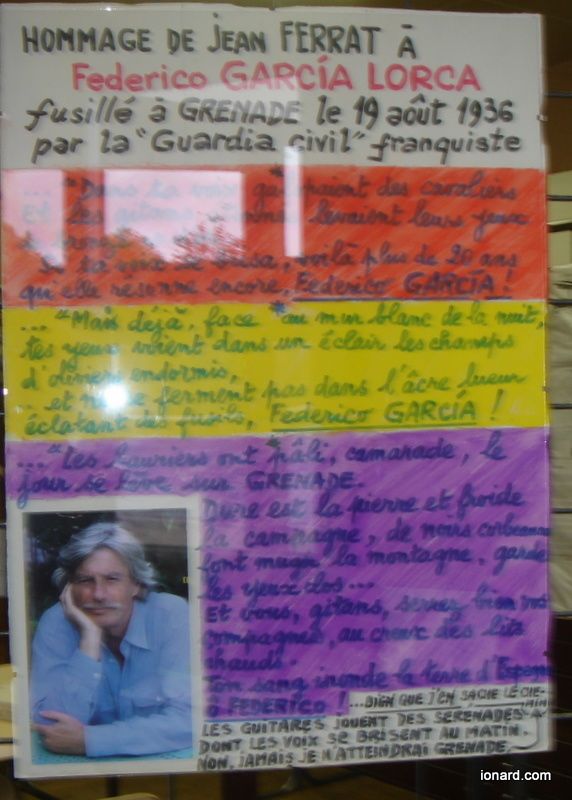 HOMMAGE DE JEAN FERRAT À
Federico GARCÍA LORCA
fusillé à GRENADE le 19 août 1936
par la "Guardia civil" franquiste
... "Dans ta voix galopaient des cavaliers
Et les gitans étonnés levaient leurs yeux
Si ta voix se brisa, voilà plus de 20 ans
qu'elle résonne encore, Federico GARCÍA !
... "Mais déjà, face au mur blanc de la nuit,
tes yeux voient dans un éclair les champs
d'oliviers endormis,
et ne se ferment pas dans l'âcre lueur
éclatant des fusils, Federico GARCÍA !
... "Les Lauriers ont pâli, camarade, le
jour se lève sur GRENADE.
Dure est la pierre et froide
la campagne, de noirs corbeaux
font mugir la montagne, garde
les yeux clos...
Et vous, gitans, serrez bien vos
compagnes, au creux des lits
chauds.
Ton sang inonde la terre d'Espagne
ô FEDERICO !
...BIEN QUE J'EN SACHE LE CHE-
MIN
LES GUITARES JOUENT DES SERENADES
DONT LES VOIX SE BRISENT AU MATIN.
NON, JAMAIS JE N'ATTEINDRAI GRENADE,
ionard.com